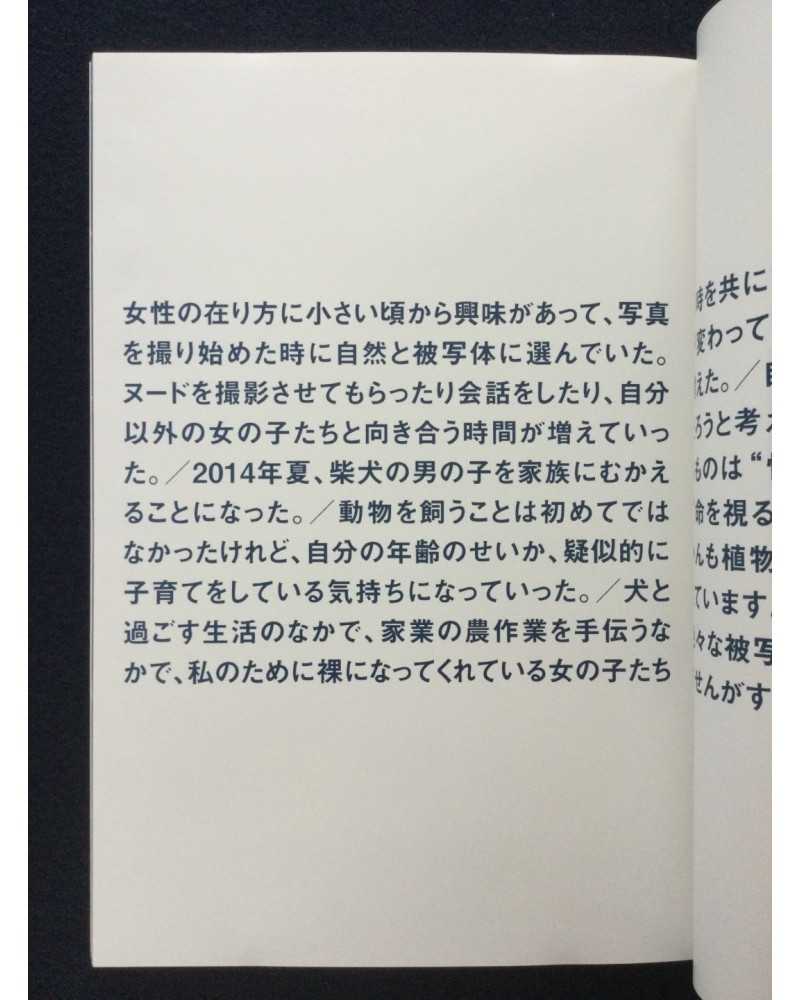 女性の在り方に小さい頃から興味があって、写真
を撮り始めた時に自然と被写体に選んでいた。
ヌードを撮影させてもらったり会話をしたり、自分
以外の女の子たちと向き合う時間が増えていっ
た。／2014年夏、柴犬の男の子を家族にむかえ
ることになった。／動物を飼うことは初めてでは
なかったけれど、自分の年齢のせいか、疑似的に
子育てをしている気持ちになっていった。／犬と
過ごす生活のなかで、家業の農作業を手伝うな
かで、私のために裸になってくれている女の子たち
時を共に
変わって
えた。／
ろうと考
ものは“
命を視る
んも植物
ています
々な被写
せんがす